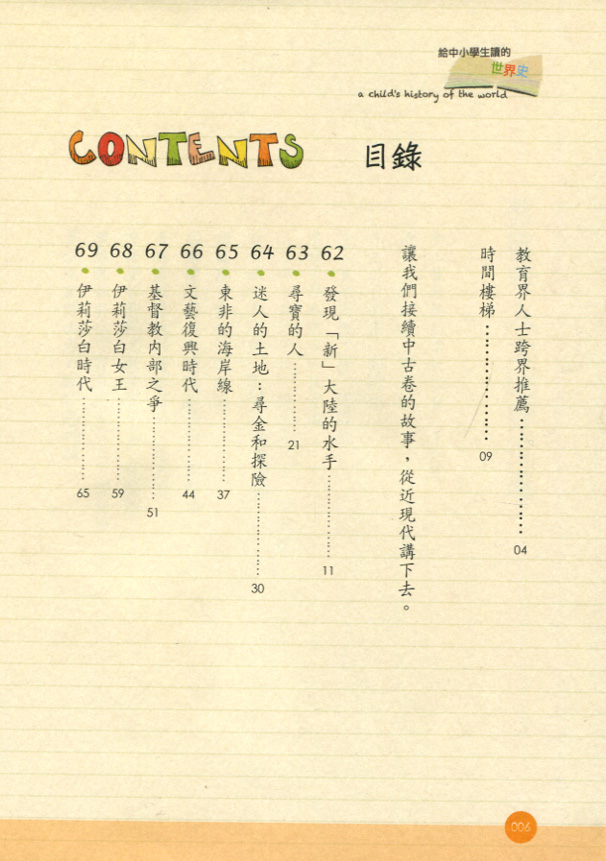 給中小學生讀的
世界史
a child's history of the world
CONTENTS
目錄
教育界人士跨界推薦 04
時間樓梯 09
讓我們接續中古卷的故事，從近現代講下去。
62 發現「新」大陸的水手 11
63 尋寶的人 21
64 迷人的土地：尋金和探險 30
65 東非的海岸線 37
66 文藝復興時代 44
67 基督教內部之爭 51
68 伊莉莎白女王 59
69 伊莉莎白時代 65
006